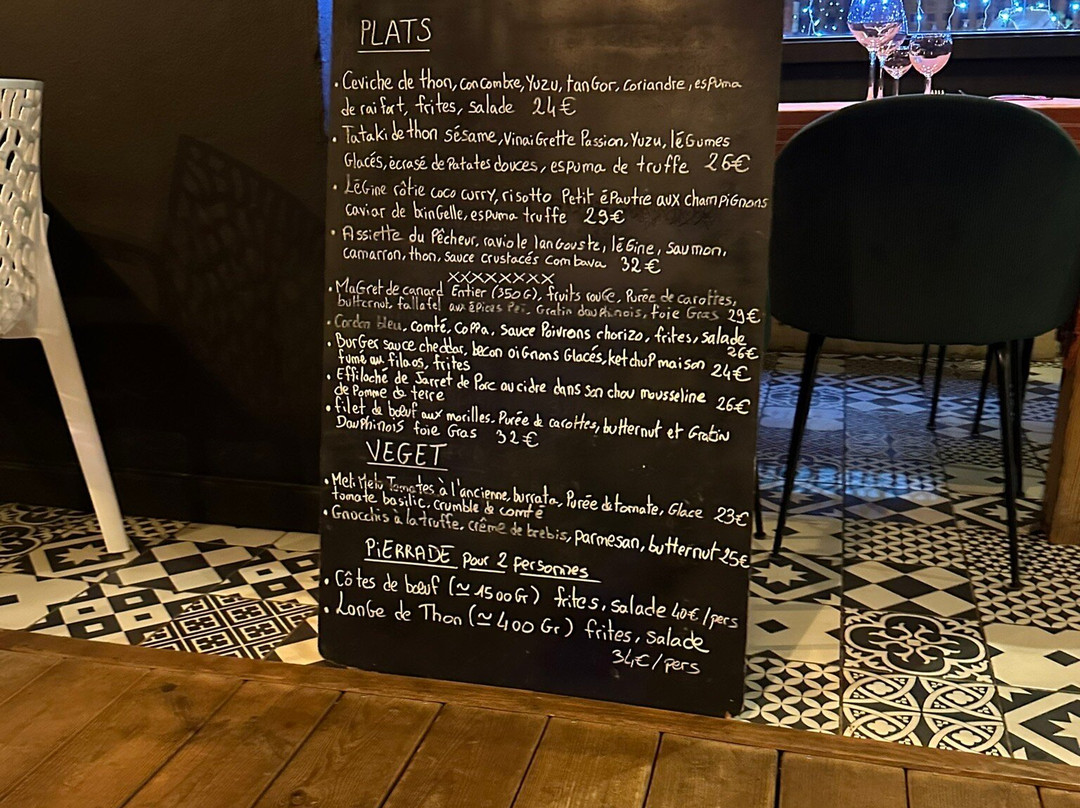 PLATS
• Ceviche de thon, concombre, Yuzu, tangor, coriandre, espuma
de raifort, frites, salade 24€
• Tataki de thon sésame, vinaigrette Passion, Yuzu, légumes
Glacés, écrasé de Patates douces, espuma de truffe 26€
• Légine rôtie coco curry, risotto Petit épautre aux champignons
caviar de bringelle, espuma truffe 29€
• Assiette du Pêcheur, raviole langouste, légine, saumon,
camarron, thon, sauce crustacés combava 32€
XXXXXXXX
• Magret de canard Entier (350G), fruits rouge, Purée de carottes,
butternut, fallafel aux épices Peï, Gratin dauphinois, foie Gras 29€
• Cordon bleu, comté, coppa, sauce Poivrons chorizo, frites, salade
26€
• Burger sauce cheddar, becon oignons Glacés, ketchup maison 24€
fumé au filaos, frites
• Effiloché de Jarret de Porc au cidre dans son chou mousseline 26€
de Pomme de terre
• filet de bœuf aux morilles, Purée de carottes, butternut et Gratin
Dauphinois foie Gras 32€
VEGET
• Meli Melo Tomates à l'ancienne, burrata, Purée de tomate, Glace 23€
tomate basilic, crumble de comté
• Gnocchis à la truffe, crême de brebis, parmesan, butternut 25€
PiERRADE pour 2 personnes
• Côtes de bœuf (≃ 1500Gr) frites, salade 40€/pers
• Longe de Thon (≃ 400 Gr) frites, salade
34€/pers